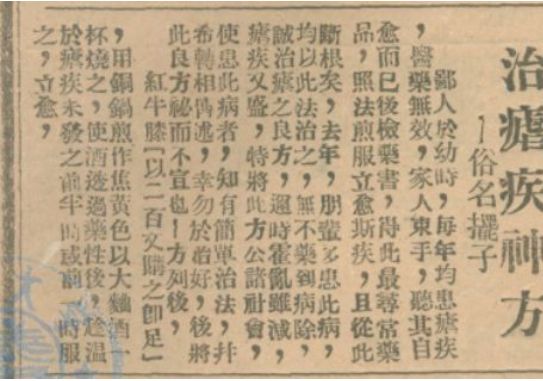 治瘧疾神方
—俗名擺子
鄙人於幼時，每年均患瘧疾
，醫藥無效，家人束手，聽其自
愈而已後檢藥書，得此最尋常藥
品，照法煎服立愈斯疾，且從此
斷根矣，去年，朋輩多患此病，
均以此法治之，無不藥到病除，
誠治瘧之良方，邇時霍亂雖減，
瘧疾又盛，特將此方公諸社會，
使患此病者，知有簡單治法，幷
希轉相傳述，幸勿於愈好，後將
此良方祕而不宣也—方列後，
紅牛膝〔以二百文購之卽足〕
，用銅鍋煎作焦黃色以大麯酒一
杯燒之，使酒透過藥性後，趁溫
於瘧疾未發之前半時或前一時服
之，立愈，